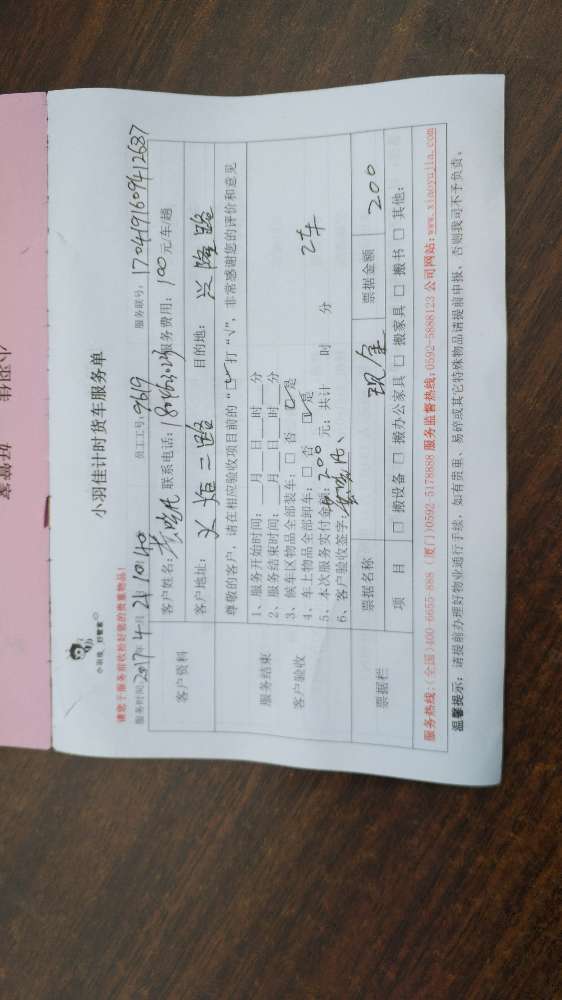 小羽佳计时货车服务单
小羽佳 好管家
请您于服务前收拾好您的贵重物品！
服务时间 2017年 4月 21 10:40 员工工号: 9619 服务联号: 1704191609412687
客户资料
客户姓名: 联系电话: 服务费用: 100 元车/趟
客户地址: 火炬二路 目的地: 兴隆路
尊敬的客户，请在相应验收项目前的“□”打“√”，非常感谢您的评价和意见
服务结束
客户验收
1、服务开始时间: 月 日 时 分
2、服务结束时间: 月 日 时 分
3、候车区物品全部装车: □ 否 ☑是
4、车上物品全部卸车: □ 否 ☑是 2车
5、本次服务实付金额: 200 元; 共计 时 分
6、客户验收签字:
票据栏
票据名称 现金 票据金额 200
项 目 □ 搬设备 □ 搬办公家具 □ 搬家具 □ 搬书 □ 其他:
服务热线: (全国)400-6655-888 (厦门)0592-5178888 服务监督热线:0592-5888123 公司网站:www.xiaoyujia.com
温馨提示: 请提前办理好物业通行手续，如有贵重、易碎或其它特殊物品请提前申报，否则我司不予负责。